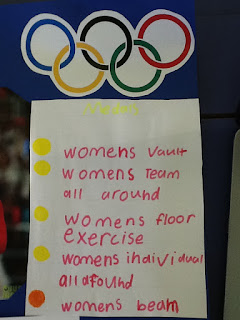 womens Vault
womens Team
all around
womens floor
exercise
womens individual
all around
womens beam